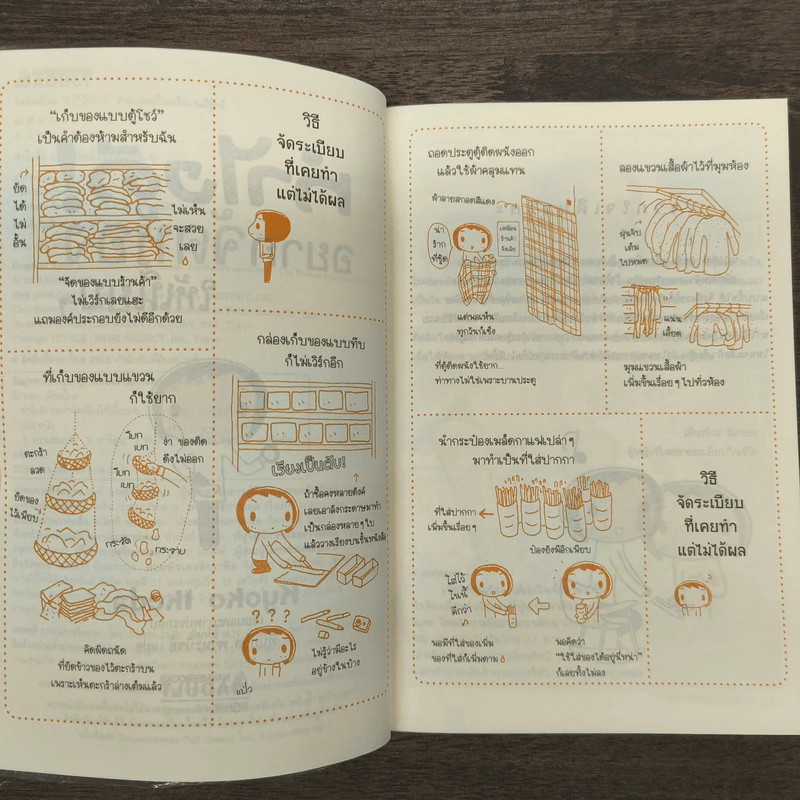 "เก็บของแบบตู้โชว์"
เป็นคำต้องห้ามสำหรับฉัน
ยัด
ได้
ไม่
อั้น
ไม่เห็น
จะสวย
เลย
"จัดของแบบร้านค้า"
ไม่เวิร์กเลยแฮะ
แถมองค์ประกอบยังไม่ดีอีกด้วย
วิธี
จัดระเบียบ
ที่เคยทำ
แต่ไม่ได้ผล
ที่เก็บของแบบแขวน
ก็ใช้ยาก
ตะกร้า
ลวด
ยัดของ
ไว้เพียบ
โยก
เยก
โยก
เยก
ง่า ของติด
ดึงไม่ออก
กระจัด
กระจาย
คิดผิดถนัด
ที่ยัดข้าวของไว้ตะกร้าบน
เพราะเห็นตะกร้าล่างเต็มแล้ว
กล่องเก็บของแบบทึบ
ก็ไม่เวิร์กอีก
เรียงเป็นตับ!
ถ้าซื้อคงหลายตังค์
เลยเอาลังกระดาษมาทำ
เป็นกล่องหลายๆ ใบ
แล้ววางเรียงบนชั้นหนังสือ
? ? ?
ไม่รู้ว่ามีอะไร
อยู่ข้างในบ้าง
แป่ว
ถอดประตูตู้ติดผนังออก
แล้วใช้ผ้าคลุมแทน
ผ้าลายสกอตสีแดง
น่า
รัก
ที่รู้ด
เหมือน
ร้านค้า
จังเลย
แต่พอเห็น
ทุกวันก็เซ็ง
ที่ตู้ติดผนังใช้ยาก...
ท่าทางไม่ใช่เพราะบานประตู
ลองแขวนเสื้อผ้าไว้ที่มุมห้อง
ฝุ่นจับ
เต็ม
ไปหมด
แน่น
เอี้ยด
มุมแขวนเสื้อผ้า
เพิ่มขึ้นเรื่อยๆ ไปทั่วห้อง
นำกระป๋องเมล็ดกาแฟเปล่าๆ
มาทำเป็นที่ใส่ปากกา
ที่ใส่ปากกา
เพิ่มขึ้นเรื่อยๆ
ป๋องยังมีอีกเพียบ
ใส่ไว้
ในนี้
ดีกว่า
พอมีที่ใส่ของเพิ่ม
ของที่ใส่ก็เพิ่มตาม
พอคิดว่า
"ใช้ใส่ของได้อยู่นี่หน่า"
ก็เลยทิ้งไม่ลง
วิธี
จัดระเบียบ
ที่เคยทำ
แต่ไม่ได้ผล